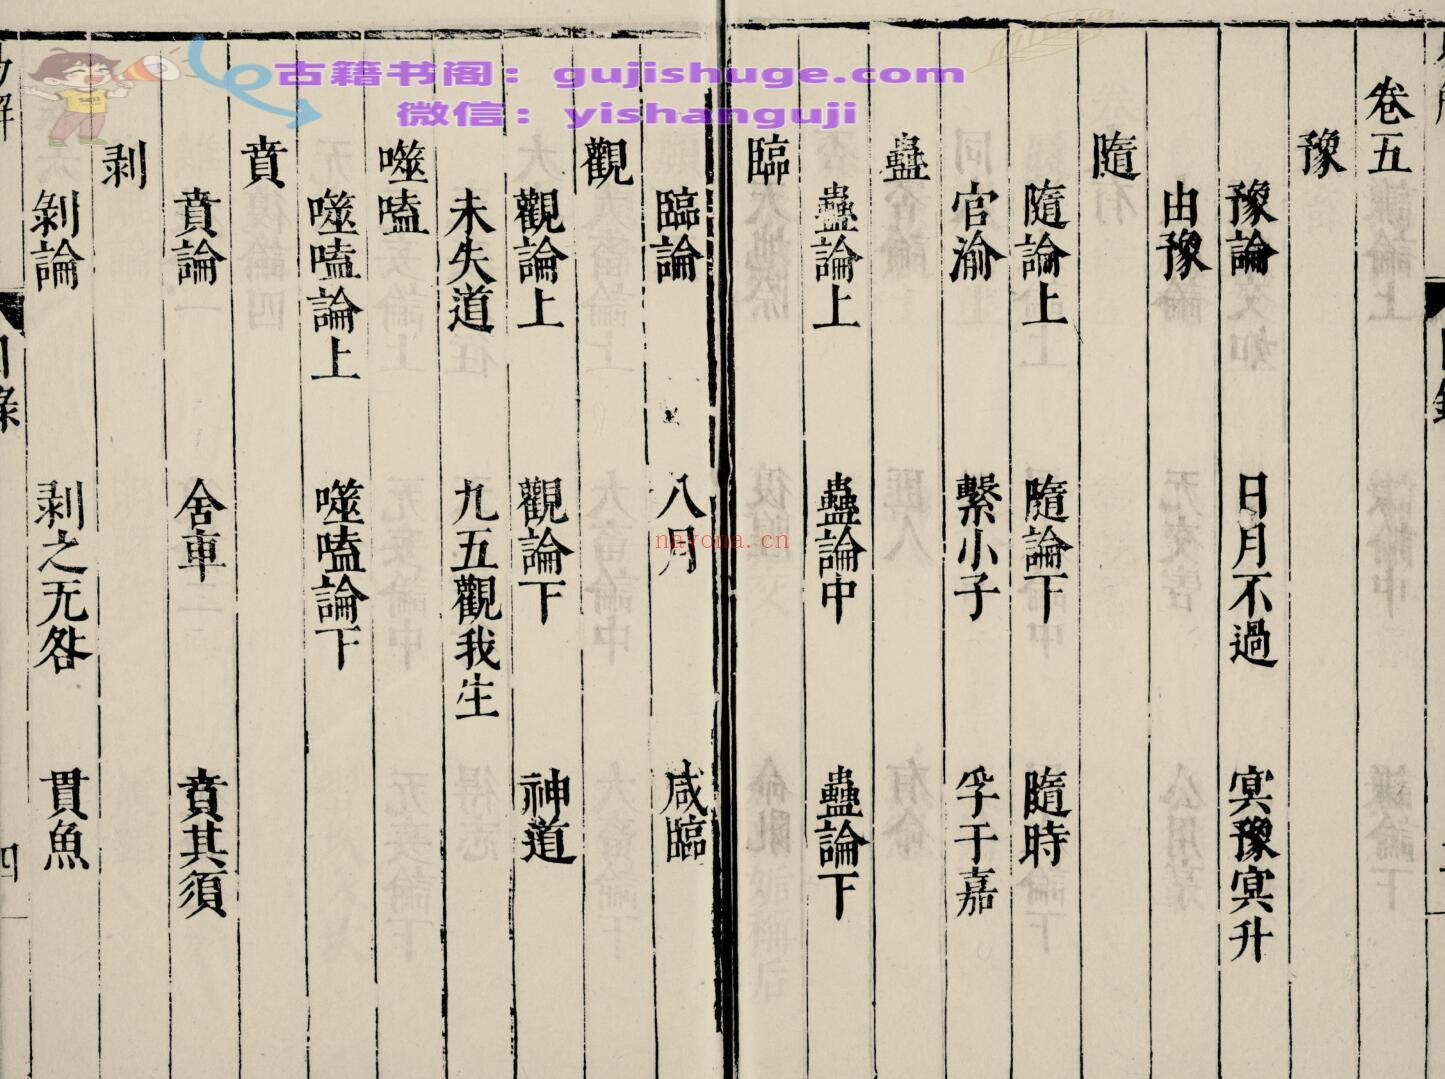 古籍书阁：gujishuge.com
微信：yishanguji
卷五
豫
豫論 日月不過 冥豫冥升
由豫
隨
隨論上 隨論下 隨時
官渝 繫小子 孚于嘉
蠱
蠱論上 蠱論中 蠱論下
臨
臨論 八月 咸臨
觀
觀論上 觀論下 神道
未失道 九五觀我生
噬嗑
噬嗑論上 噬嗑論下
賁
賁論 舍車 賁其須
剥
剝論 剥之无咎 貫魚
目錄
四
nayona.cn